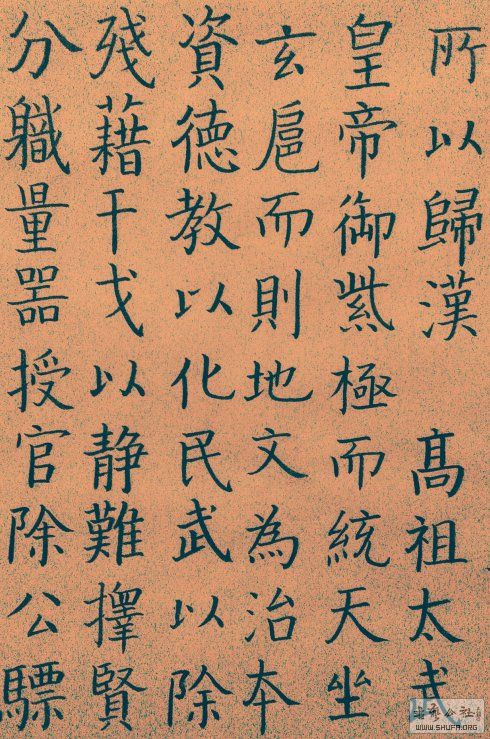 所以歸漢 髙祖太武
皇帝御紫極而統天坐
玄扈而則地文為治本
資德教以化民武以除
殘藉干戈以静難擇賢
分職量器授官除公驃
书法公社
WWW.SHUFA.ORG